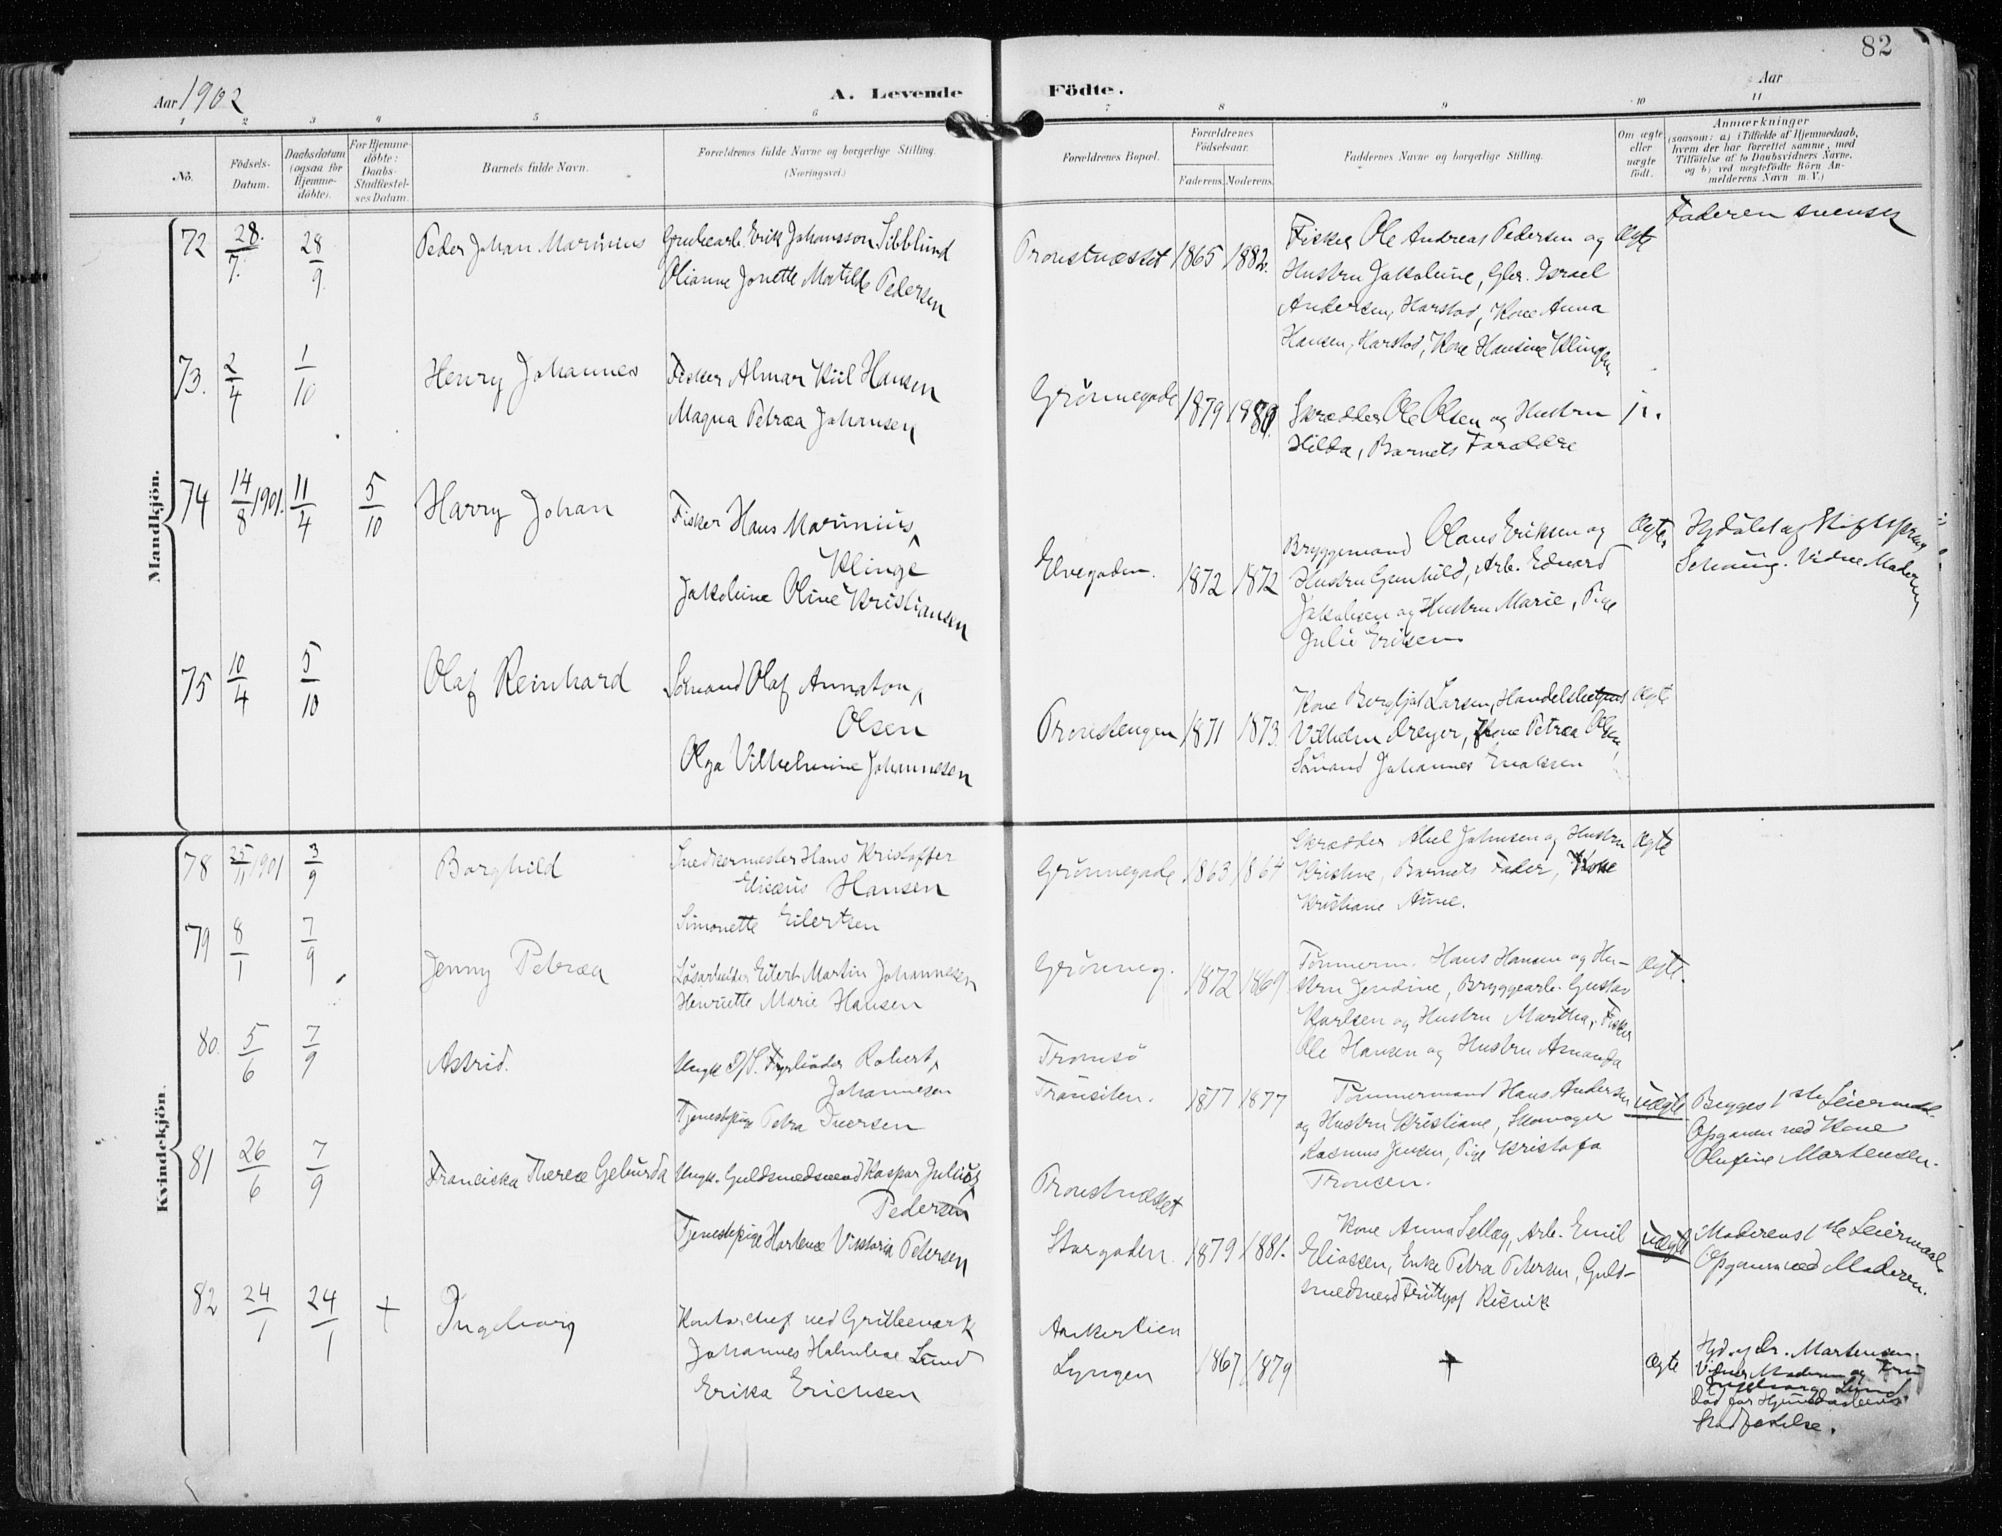 82
Aar 1902
A. Levende Födte.
Aar
1 2 3 4 5 6 7 8 9 10 11
No.
Födsels-Datum.
Daabsdatum (ogsaa for Hjemmedöbte).
For Hjemmedöbte: Daabs-Stadfæstelses Datum.
Barnets fulde Navn.
Forældrenes fulde Navne og borgerlige Stilling. (Næringsvei.)
Forældrenes Bopæl.
Forældrenes Födselsaar.
Faderens. Moderens.
Faddernes Navne og borgerlige Stilling.
Om ægte eller uægte födt.
Anmærkninger
(saasom: a) i Tilfælde af Hjemmedaab,
hvem der har forrettet samme, med
Tilföielse af to Daabsvidners Navne,
og b) ved uægtefödte Börn An-
melderens Navn m. V.)
Mandkjön.
72 28/7. 28/9 Peder Johan Marinius
Grubearb. Erik Johansson Sibblund
Olianne Jonette Matilde Pedersen
Pronstnæsset 1865 1882.
Fisker Ole Andreas Pedersen og
Hustru Jakobine, Gbr. Israel
Andersen, Harstad, Kone Anna
Hansen, Harstad, Kone Hansine Klinge
Ægte
Faderen svensk
73. 2/4 1/10 Henry Johannes
Fisker Almar Kiil Hansen
Magna Petræa Johansen
Grønnegade 1879
Skrædder Ole Olsen og Hustru
Hilda, Barnets Forældre
74 14/8 1901. 11/4 5/10 Harry Johan
Fisker Hans Marinius
Klinge
Jakobine Oline Kristiansen
Elvegaden. 1872 1872
Bryggemand Olaus Eriksen og
Hustru Gunhild, Arb. Edvard
Jakobsen og Hustru Marie, Pige
Julie Eriksen
Ægte
Schøning. Vidne Moderen
75 10/4 5/10 Olaf Reinhard
Sömand Olaf Annaton
Olsen
Olga Vilhelmine Johannesen
Pronstengen 1871 1873.
Kone Bergljot Larsen, Handelsbetjent
Vilhelm Dreyer, Kone Petræa Olsen,
Sömand Johannes Enoksen
Ægte
Kvindekjön.
78 25/11 1901 3/9 Borghild
Snedkermester Hans Kristoffer
Elisæus Hansen
Simonette Eilertsen
Grønnegade 1863 1864
Skrædder Abel Johnsen og Hustru
Kristine, Barnets Fader, Kone
Kristiane Aune.
Ægte
79 8/1 7/9 Jenny Petræa
Løsarbeider Eilert Martin Johannesen
Henriette Marie Hansen
Grønneg. 1872 1869
Tömmerm. Hans Hansen og Hu-
stru Jendine, Bryggearb. Gustav
Karlsen og Hustru Martha, Fisker
Ole Hansen og Hustru Amanda
Ægte.
80. 5/6 7/9 Astrid.
Ungk. D/S. Fyrbøder Robert
Johannesen
Tjenestepige Petra Iversen
Tromsö
1877 1877
Tömmermand Hans Andersen
og Hustru Kristiane, Skomager
Rasmus Jensen, Pige Kristofa
Tronsen.
Uægte
Begges 1ste Leiermaal.
Opgaven ved Kone
Olufine Martensen.
81 26/6 7/9 Franciska Therese Geburda
Ungk. Guldsmedsvend Kaspar Julius
Pedersen
Tjenestepige Hortense Viktoria Petersen
Pronstnæsset
Storgaden. 1879 1881.
Kone Anna Sellæg, Arb. Emil
Eliassen, Enke Petra Petersen, Guld-
smedsvend Frithjof Risvik
Uægte
Moderens 1ste Leiermaal.
Opgaven ved Moderen.
82 24/1 24/1 + Ingeborg
Kontorchef ved Grubeværk
Johannes Holmboe Lund
Erika Erichsen
Ankerlien
Lyngen 1867 1879
+
Ægte
Hjd. af Dr. Martensen.
Vidner Moderen og Fru
Ingeborg Lund
Död før Hjemmedaabens
Stadfestelse.